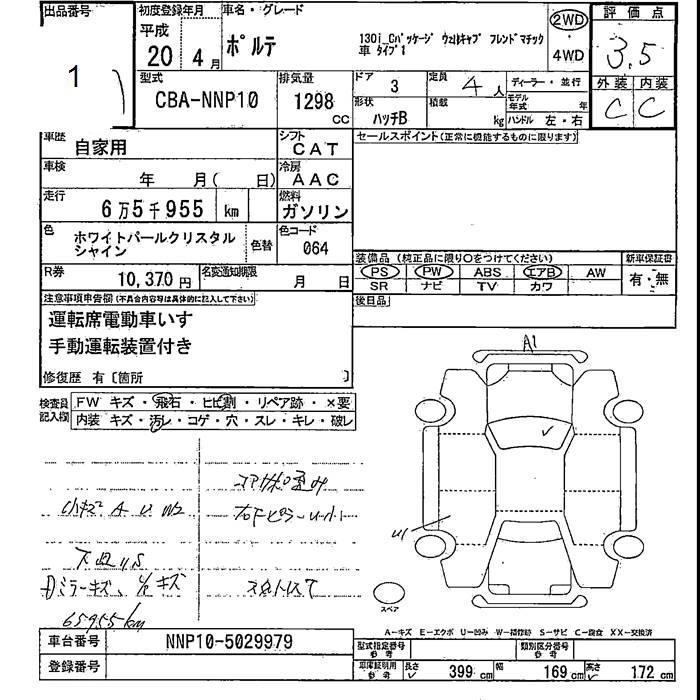 出品番号
1
初度登録年月
平成
20年 4月
車名・グレード
ポルテ
130i_Cパッケージ ウェルキャブ フレンドマチック
車 タイプ1
2WD
4WD
評価点
3.5
外装 内装
C C
型式
CBA-NNP10
排気量
1298
cc
ドア
3
定員
4人
ディーラー・並行
形状
ハッチB
積載
kg
モデル
年式
年
ハンドル 左・右
車歴
自家用
シフト
CAT
セールスポイント(正常に機能するものに限ります)
車検
年 月( 日)
冷房
AAC
走行
6万5千955 km
燃料
ガソリン
色
ホワイトパールクリスタル
シャイン
色替
色コード
064
装備品 (純正品に限り○をつけてください)
新車保証書
PS PW ABS エアB AW
SR ナビ TV カワ
有・無
R券
10,370円
名変通知期限
月 日
後日品
注意事項申告欄(不具合内容等は具体的に記入して下さい)
運転席電動車いす
手動運転装置付き
修復歴 有〔箇所 〕
検査員
記入欄
FW キズ・飛石・ヒビ割・リペア跡・×要
内装 キズ・汚レ・コゲ・穴・スレ・キレ・破レ
A1
小キズ A U W2
U1
Dミラーキズ、
65955km
スペア
A-キズ E-エクボ U-凹み W-補修跡 S-サビ C-腐食 XX-交換済
車台番号
NNP10-5029979
登録番号
型式指定番号
参考
類別区分番号
参考
車庫証明用
参考
長さ
399 cm
幅
169 cm
高さ
172 cm